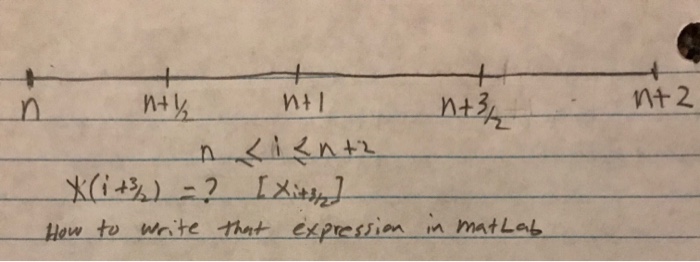 n n+1/2 n+1 n+3/2 n+2
n ≤ i ≤ n+2
X(i+3/2) = ? [Xi+3/2]
How to write that expression in matLab